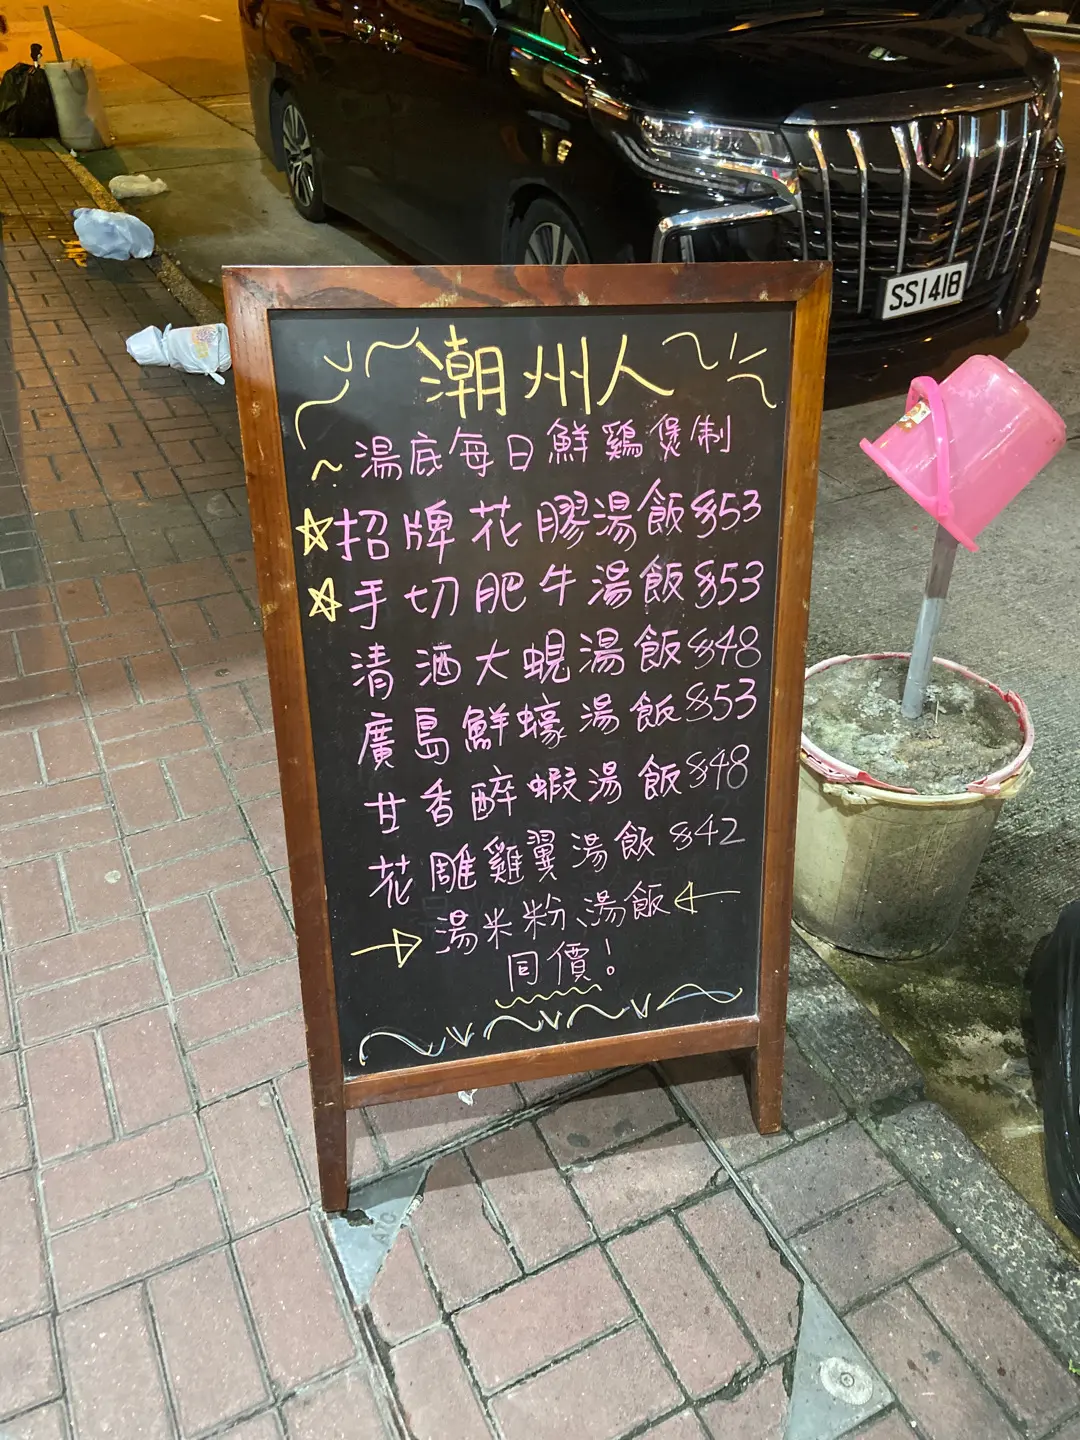 SS1418
潮州人
湯底每日鮮鷄煲制
招牌花膠湯飯$53
手切肥牛湯飯$53
清酒大蜆湯飯$48
廣島鮮蠔湯飯$53
甘香醉蝦湯飯$48
花雕雞翼湯飯$42
湯米粉、湯飯
同價!